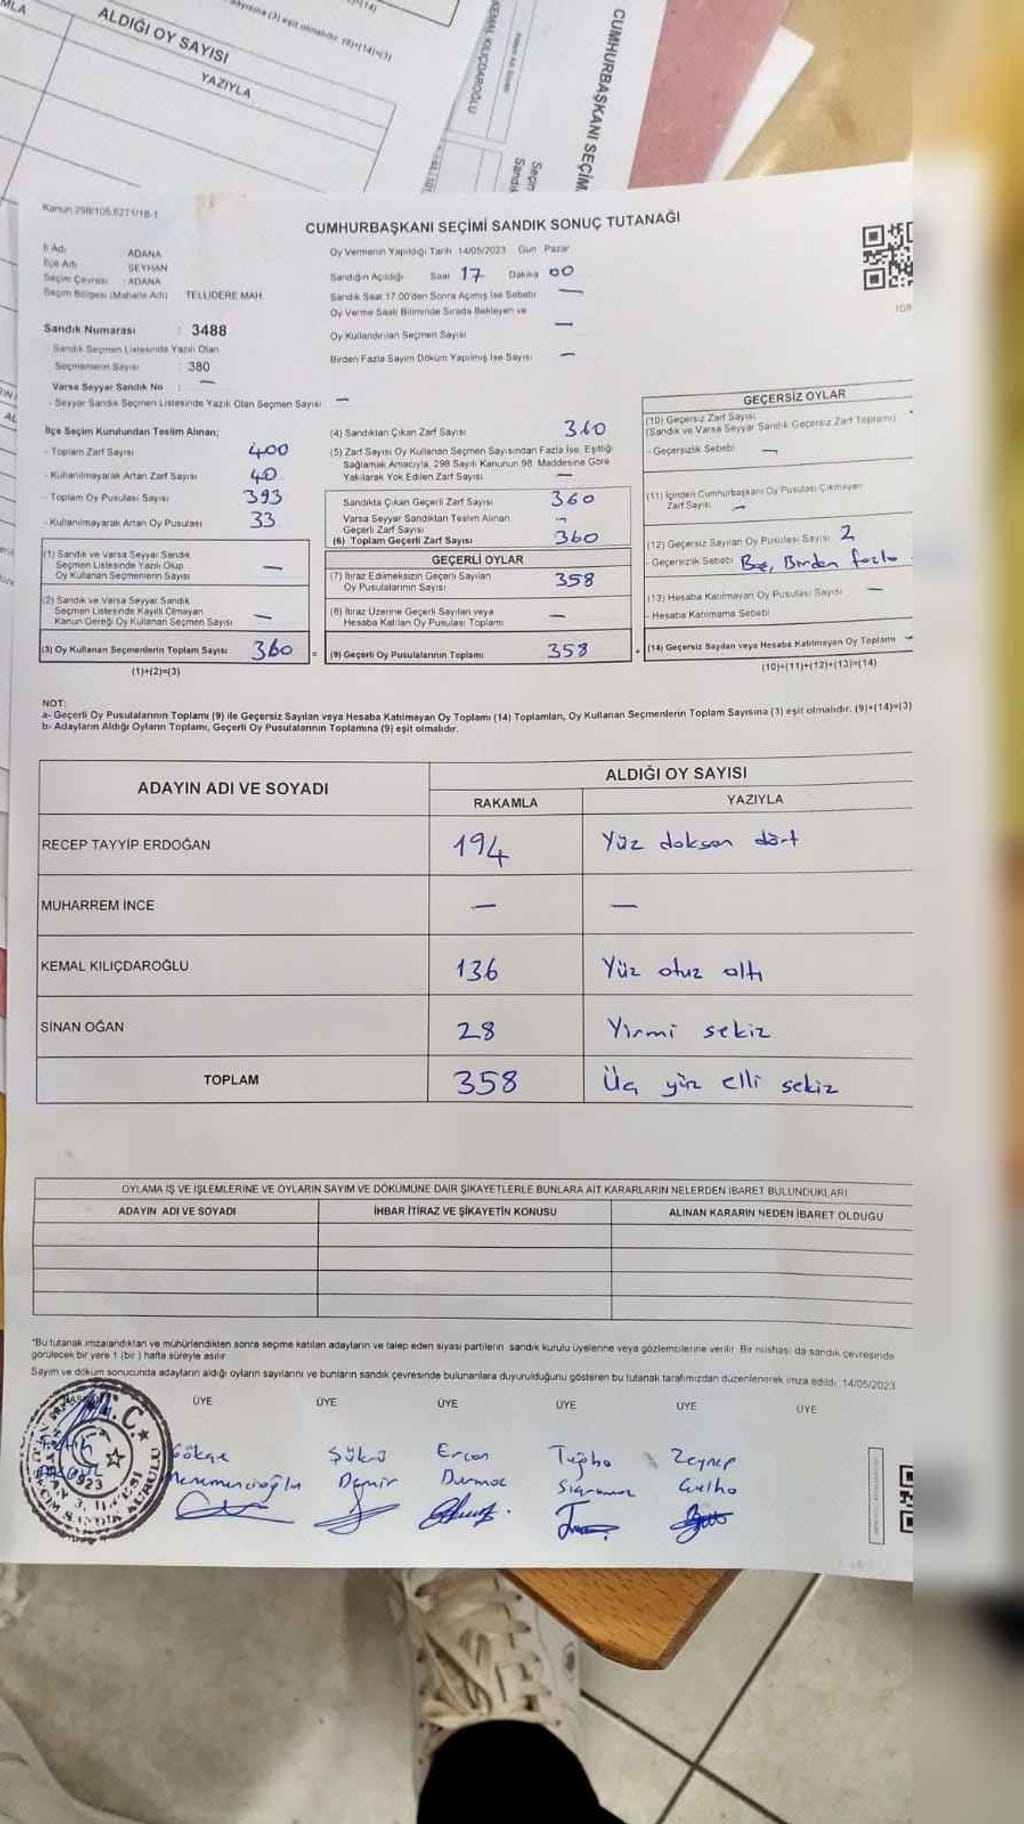 ALDIĞI OY SAYISI
YAZIYLA
KEMAL KILIÇDAROĞLU
CUMHURBAŞKANI SEÇİM
Kanun 298/105,6271/18-1
CUMHURBAŞKANI SEÇİMİ SANDIK SONUÇ TUTANAĞI
İl Adı ADANA
İlçe Adı SEYHAN
Seçim Çevresi : ADANA
Seçim Bölgesi (Mahalle Adı) TELLİDERE MAH.
Oy Vermenin Yapıldığı Tarih 14/05/2023 Gün Pazar
Sandığın Açıldığı Saat 17 Dakika 00
Sandık Saat 17:00'den Sonra Açılmış İse Sebebi —
Oy Verme Saati Bitiminde Sırada Bekleyen ve
Oy Kullandırılan Seçmen Sayısı —
Birden Fazla Sayım Döküm Yapılmış İse Sayısı —
Sandık Numarası : 3488
Sandık Seçmen Listesinde Yazılı Olan
Seçmenlerin Sayısı : 380
Varsa Seyyar Sandık No : —
- Seyyar Sandık Seçmen Listesinde Yazılı Olan Seçmen Sayısı —
İlçe Seçim Kurulundan Teslim Alınan;
- Toplam Zarf Sayısı 400
- Kullanılmayarak Artan Zarf Sayısı 40
- Toplam Oy Pusulası Sayısı 393
- Kullanılmayarak Artan Oy Pusulası 33
(1) Sandık ve Varsa Seyyar Sandık
Seçmen Listesinde Yazılı Olup
Oy Kullanan Seçmenlerin Sayısı —
(2) Sandık ve Varsa Seyyar Sandık
Seçmen Listesinde Kayıtlı Olmayan
Kanun Gereği Oy Kullanan Seçmen Sayısı —
(3) Oy Kullanan Seçmenlerin Toplam Sayısı 360
(1)+(2)=(3)
(4) Sandıktan Çıkan Zarf Sayısı 360
(5) Zarf Sayısı Oy Kullanan Seçmen Sayısından Fazla İse, Eşitliği
Sağlamak Amacıyla, 298 Sayılı Kanunun 98. Maddesine Göre
Yakılarak Yok Edilen Zarf Sayısı —
Sandıkta Çıkan Geçerli Zarf Sayısı 360
Varsa Seyyar Sandıktan Teslim Alınan
Geçerli Zarf Sayısı —
(6) Toplam Geçerli Zarf Sayısı 360
GEÇERLİ OYLAR
(7) İtiraz Edilmeksizin Geçerli Sayılan
Oy Pusulalarının Sayısı 358
(8) İtiraz Üzerine Geçerli Sayılan veya
Hesaba Katılan Oy Pusulası Toplamı —
= (9) Geçerli Oy Pusulalarının Toplamı 358
GEÇERSİZ OYLAR
(10) Geçersiz Zarf Sayısı
(Sandık ve Varsa Seyyar Sandık Geçersiz Zarf Toplamı)
- Geçersizlik Sebebi —
(11) İçinden Cumhurbaşkanı Oy Pusulası Çıkmayan
Zarf Sayısı —
(12) Geçersiz Sayılan Oy Pusulası Sayısı 2
- Geçersizlik Sebebi Boş, Birden fazla
(13) Hesaba Katılmayan Oy Pusulası Sayısı —
- Hesaba Katılmama Sebebi
+ (14) Geçersiz Sayılan veya Hesaba Katılmayan Oy Toplamı
(10)+(11)+(12)+(13)=(14)
NOT:
a- Geçerli Oy Pusulalarının Toplamı (9) ile Geçersiz Sayılan veya Hesaba Katılmayan Oy Toplamı (14) Toplamları, Oy Kullanan Seçmenlerin Toplam Sayısına (3) eşit olmalıdır. (9)+(14)=(3)
b- Adayların Aldığı Oyların Toplamı, Geçerli Oy Pusulalarının Toplamına (9) eşit olmalıdır.
ADAYIN ADI VE SOYADI
ALDIĞI OY SAYISI
RAKAMLA YAZIYLA
RECEP TAYYİP ERDOĞAN 194 Yüz doksan dört
MUHARREM İNCE — —
KEMAL KILIÇDAROĞLU 136 Yüz otuz altı
SİNAN OĞAN 28 Yirmi sekiz
TOPLAM 358 Üç yüz elli sekiz
OYLAMA İŞ VE İŞLEMLERİNE VE OYLARIN SAYIM VE DÖKÜMÜNE DAİR ŞİKAYETLERLE BUNLARA AİT KARARLARIN NELERDEN İBARET BULUNDUKLARI
ADAYIN ADI VE SOYADI İHBAR İTİRAZ VE ŞİKAYETİN KONUSU ALINAN KARARIN NEDEN İBARET OLDUĞU
*Bu tutanak imzalandıktan ve mühürlendikten sonra seçime katılan adayların ve talep eden siyasi partilerin sandık kurulu üyelerine veya gözlemcilerine verilir. Bir nüshası da sandık çevresinde
görülecek bir yere 1 (bir) hafta süreyle asılır.
Sayım ve döküm sonucunda adayların aldığı oyların sayılarını ve bunların sandık çevresinde bulunanlara duyurulduğunu gösteren bu tutanak tarafımızdan düzenlenerek imza edildi. 14/05/2023
ÜYE ÜYE ÜYE ÜYE ÜYE ÜYE
Gökçe Şükrü Ercan Tuğba Zeynep
Menemencioğlu Demir Durmaz
T.C.